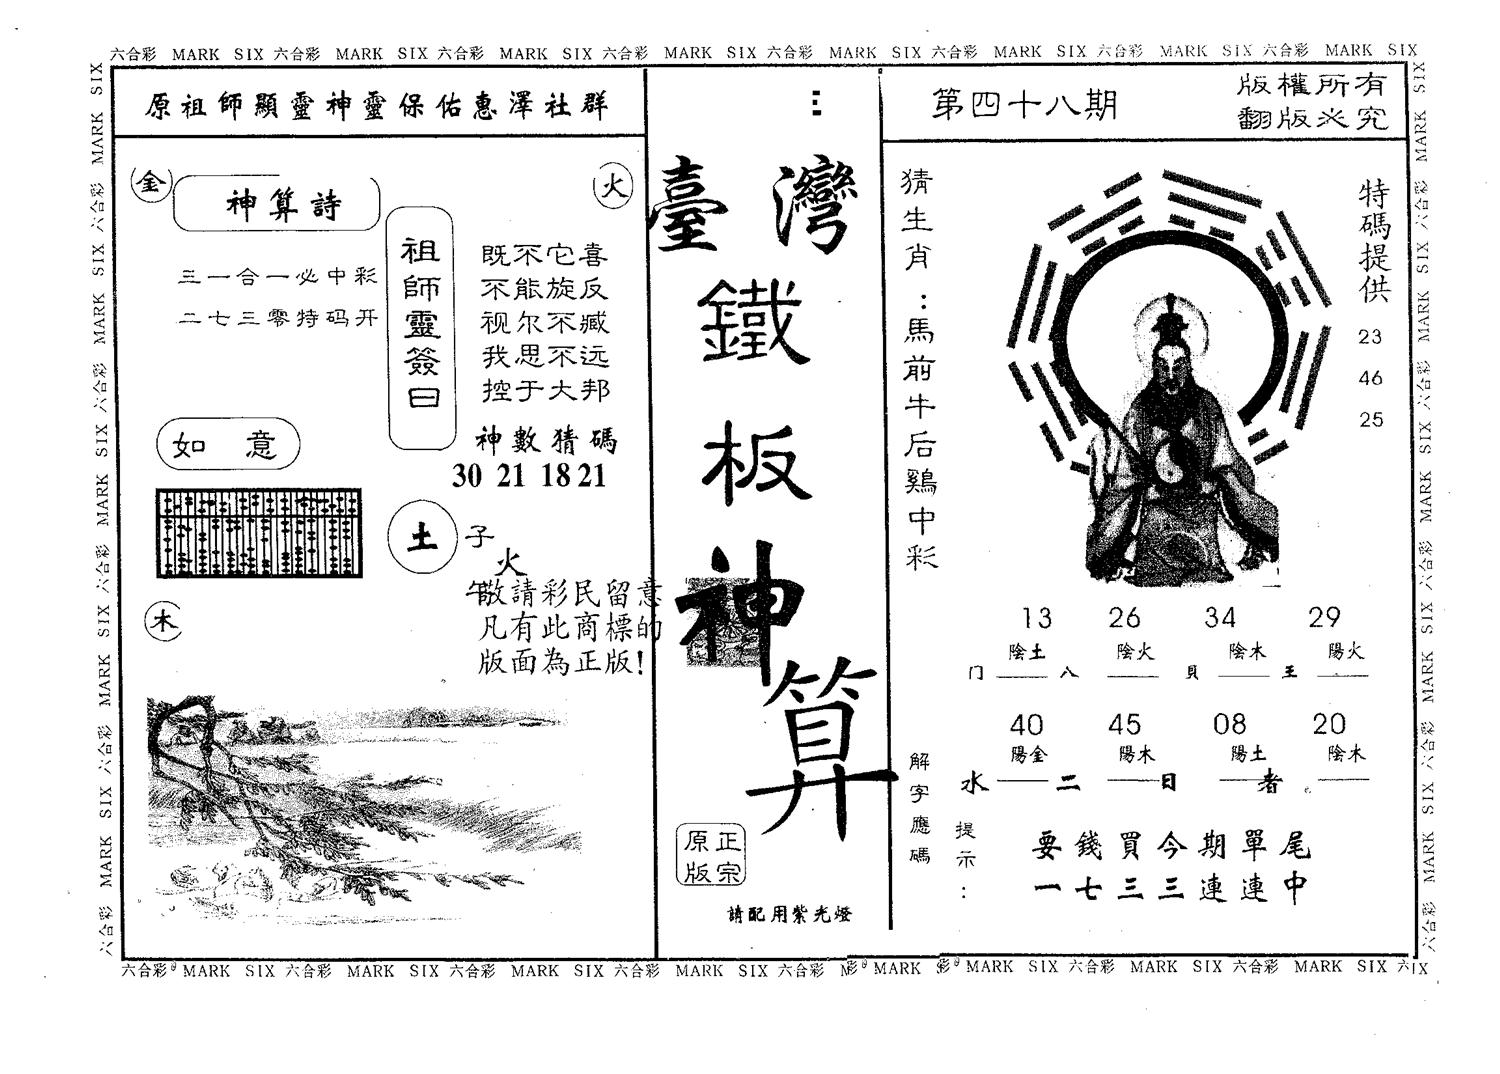 六合彩 MARK SIX 六合彩 MARK SIX 六合彩 MARK SIX 六合彩 MARK SIX 六合彩 MARK SIX 六合彩 MARK SIX 六合彩 MARK SIX 六合彩 MARK SIX
原祖師顯靈神靈保佑惠澤社群
金
神算詩
火
三一合一必中彩
二七三零特码开
祖師靈簽曰
既不它喜
不能旋反
视尔不臧
我思不远
控于大邦
神數猜碼
30 21 18 21
如 意
土
子
火
午
敬請彩民留意
凡有此商標的
版面為正版!
木
臺灣
鐵
板
神
算
正宗
原版
請配用紫光燈
第四十八期
版權所有
翻版必究
猜生肖：馬前牛后鷄中彩
特碼提供
23
46
25
13 26 34 29
陰土 陰火 陰木 陽火
门 八 貝 王
40 45 08 20
陽金 陽木 陽土 陰木
水 二 日 者
解字應碼
提示：
要錢買今期單尾
一七三三連連中
六合彩 MARK SIX 六合彩 MARK SIX 六合彩 MARK SIX 六合彩 MARK SIX 六合彩 MARK 彩 MARK SIX 六合彩 MARK SIX 六合彩 MARK SIX 六 IX